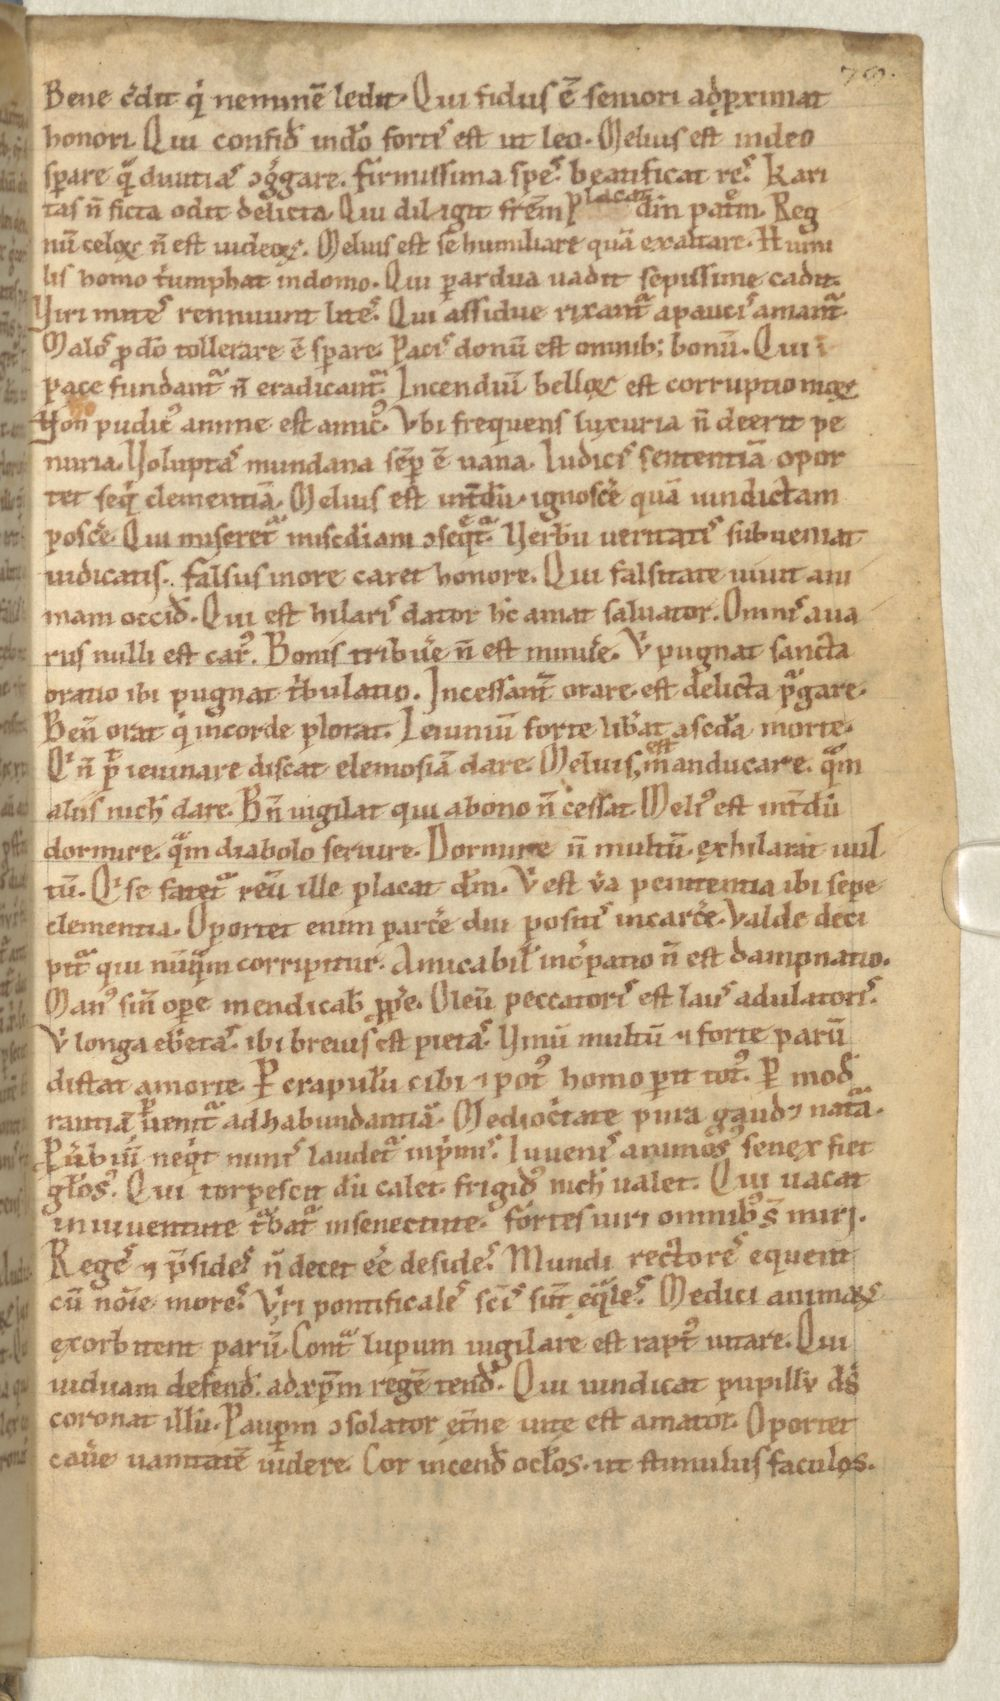 79.
Bene c̄dit q̇ neminē ledit. Qui fidus ē seniori adp̱ximat
honori. Qui confid̄ indō fortis est ut leo. Melius est indeo
sp̱are q̄ diuitias ↄg̅gare. firmissima spes beatificat res. Kari
tas n̄ ficta odit delicta. Qui diligit frēm placat dīm patrem. Reg
nū celoꝝ n̄ est uideoꝝ. Melius est se humiliare quā exaltare. Humi
lis homo t̍umphat indomo. Qui p̱ardua uadit sepissime cadit.
Viri mites rennuunt lites. Qui assidue rixant᷑ apaucis amant᷑.
Malos ꝓdō tollerare ē sp̱are. Pacis donū est omnib; bonū. Qui i
pace fundant᷑ n̄ eradicant᷑. Incendiū belloꝝ est corruptio moꝝ
Non pudic᷒ anime est amic᷒. Vbi frequens luxuria n̄ deerit pe
nuria. Voluptas mundana sēp ē uana. Iudicis sententiā opor
tet seq̇ clementiā. Melius est int̄dū ignosc̄e quā uindictam
posc̄e. Qui miseret᷑ misc̄diam ↄseq̄t᷑. Verbū ueritatis subueniat
uidicatis. falsus more caret honore. Qui falsitate uiuit ani
mam occid̄. Qui est hilaris dator hc̄ amat saluator. Omnis aua
rus nulli est car᷒. Bonis tribuē n̄ est minuē. V̇ pugnat sancta
oratio ibi pugnat t̍bulatio. Incessant̄ orare est delicta p᷑gare.
Ben̄ orat q̇ incorde plorat. Ieiuniū forte lib̄at ascd̄a morte.
Q̇ n̄ p̄t ieiunare discat elemosiā dare. Melius est manducare q̄m
aliis nich̄ dare. Bn̄ uigilat qui abono n̄ cessat. Meli᷒ est int̄dū
dormire q̄m diabolo seruire. Dormire n̄ multū exhilarat uul
tū. Q̇ se fatet᷑ reū ille placat dm̄. V̇ est u̅a penitentia ibi sepe
clementia. Oportet enim parc̄e diu positis incarc̄e. Valde deci
pit᷑ qui nūq̄m corripitur. Amicabil̄ inc̄patio n̄ est dampnatio.
Man᷒ sin̄ op̱e mendicab̄ ꝓp̱e. Oleū peccatoris est laus adulatoris.
V̇ longa eb̄etas ibi breuis est pietas. Vinū multū ⁊ forte parū
distat amorte. P̱ crapulā cibi ⁊ pot᷒ homo p̱it tot᷒. P̱ mod̄
rantiā p̱uenit᷑ adhabundantiā. Medioc̍tate pura gaud⁊ natā.
P̱ūb iū neq̇t nimis laudet᷑ inp̍mis. Iuuenis animos᷒ senex fiet
gl̄os᷒. Qui torpescit dū calet frigid᷒ nich̄ ualet. Qui uacat
iniuuentute t᷑bat᷑ insenectute. fortes uiri omnib᷒ s̄ miri.
Reges ⁊ p̄sides n̄ decet eē desides. Mundi rectores equent̄
cū noīe mores. V̇ri pontificales scī s sūt eq̄les. Medici animaꝝ
exorbitent parū. Cont᷑ lupum uigilare est rapt᷒ uitare. Qui
uiduam defend̄ adxp̄m regē tend̄. Qui uindicat pupillū ds̄
coronat illū. Paup̱m ↄsolator et̄ne uite est amator. Oportet
cau̅e uanitatē uidere. Cor incend̄ oc̄los ut stimulus faculos.